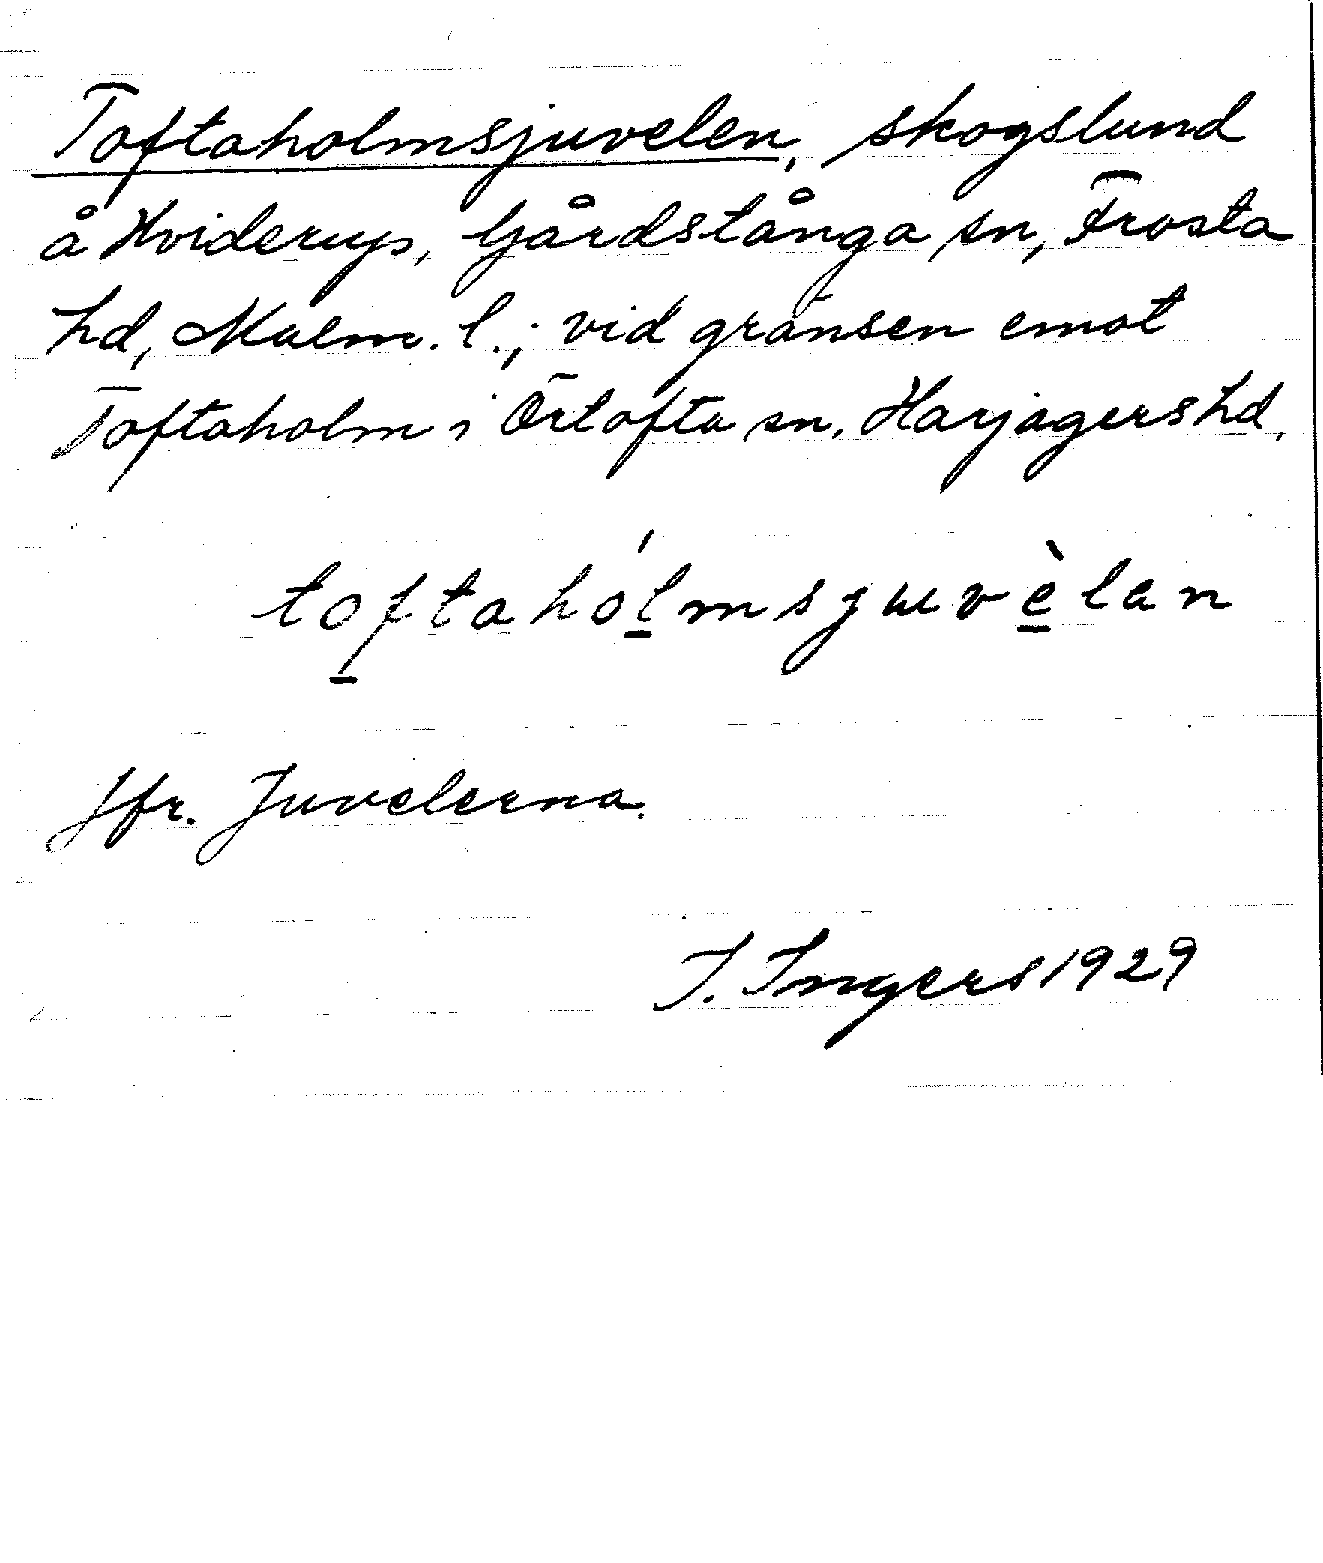 Toftaholmsjuvelen, skogslund
å Hviderup, Gårdstånga sn, Frosta
hd, Malm. l.; vid gränsen emot
Toftaholm i Örtofta sn, Harjagers hd.
toftahólmsjuvèlan
Jfr. Juvelerna.
I. Ingers 1929